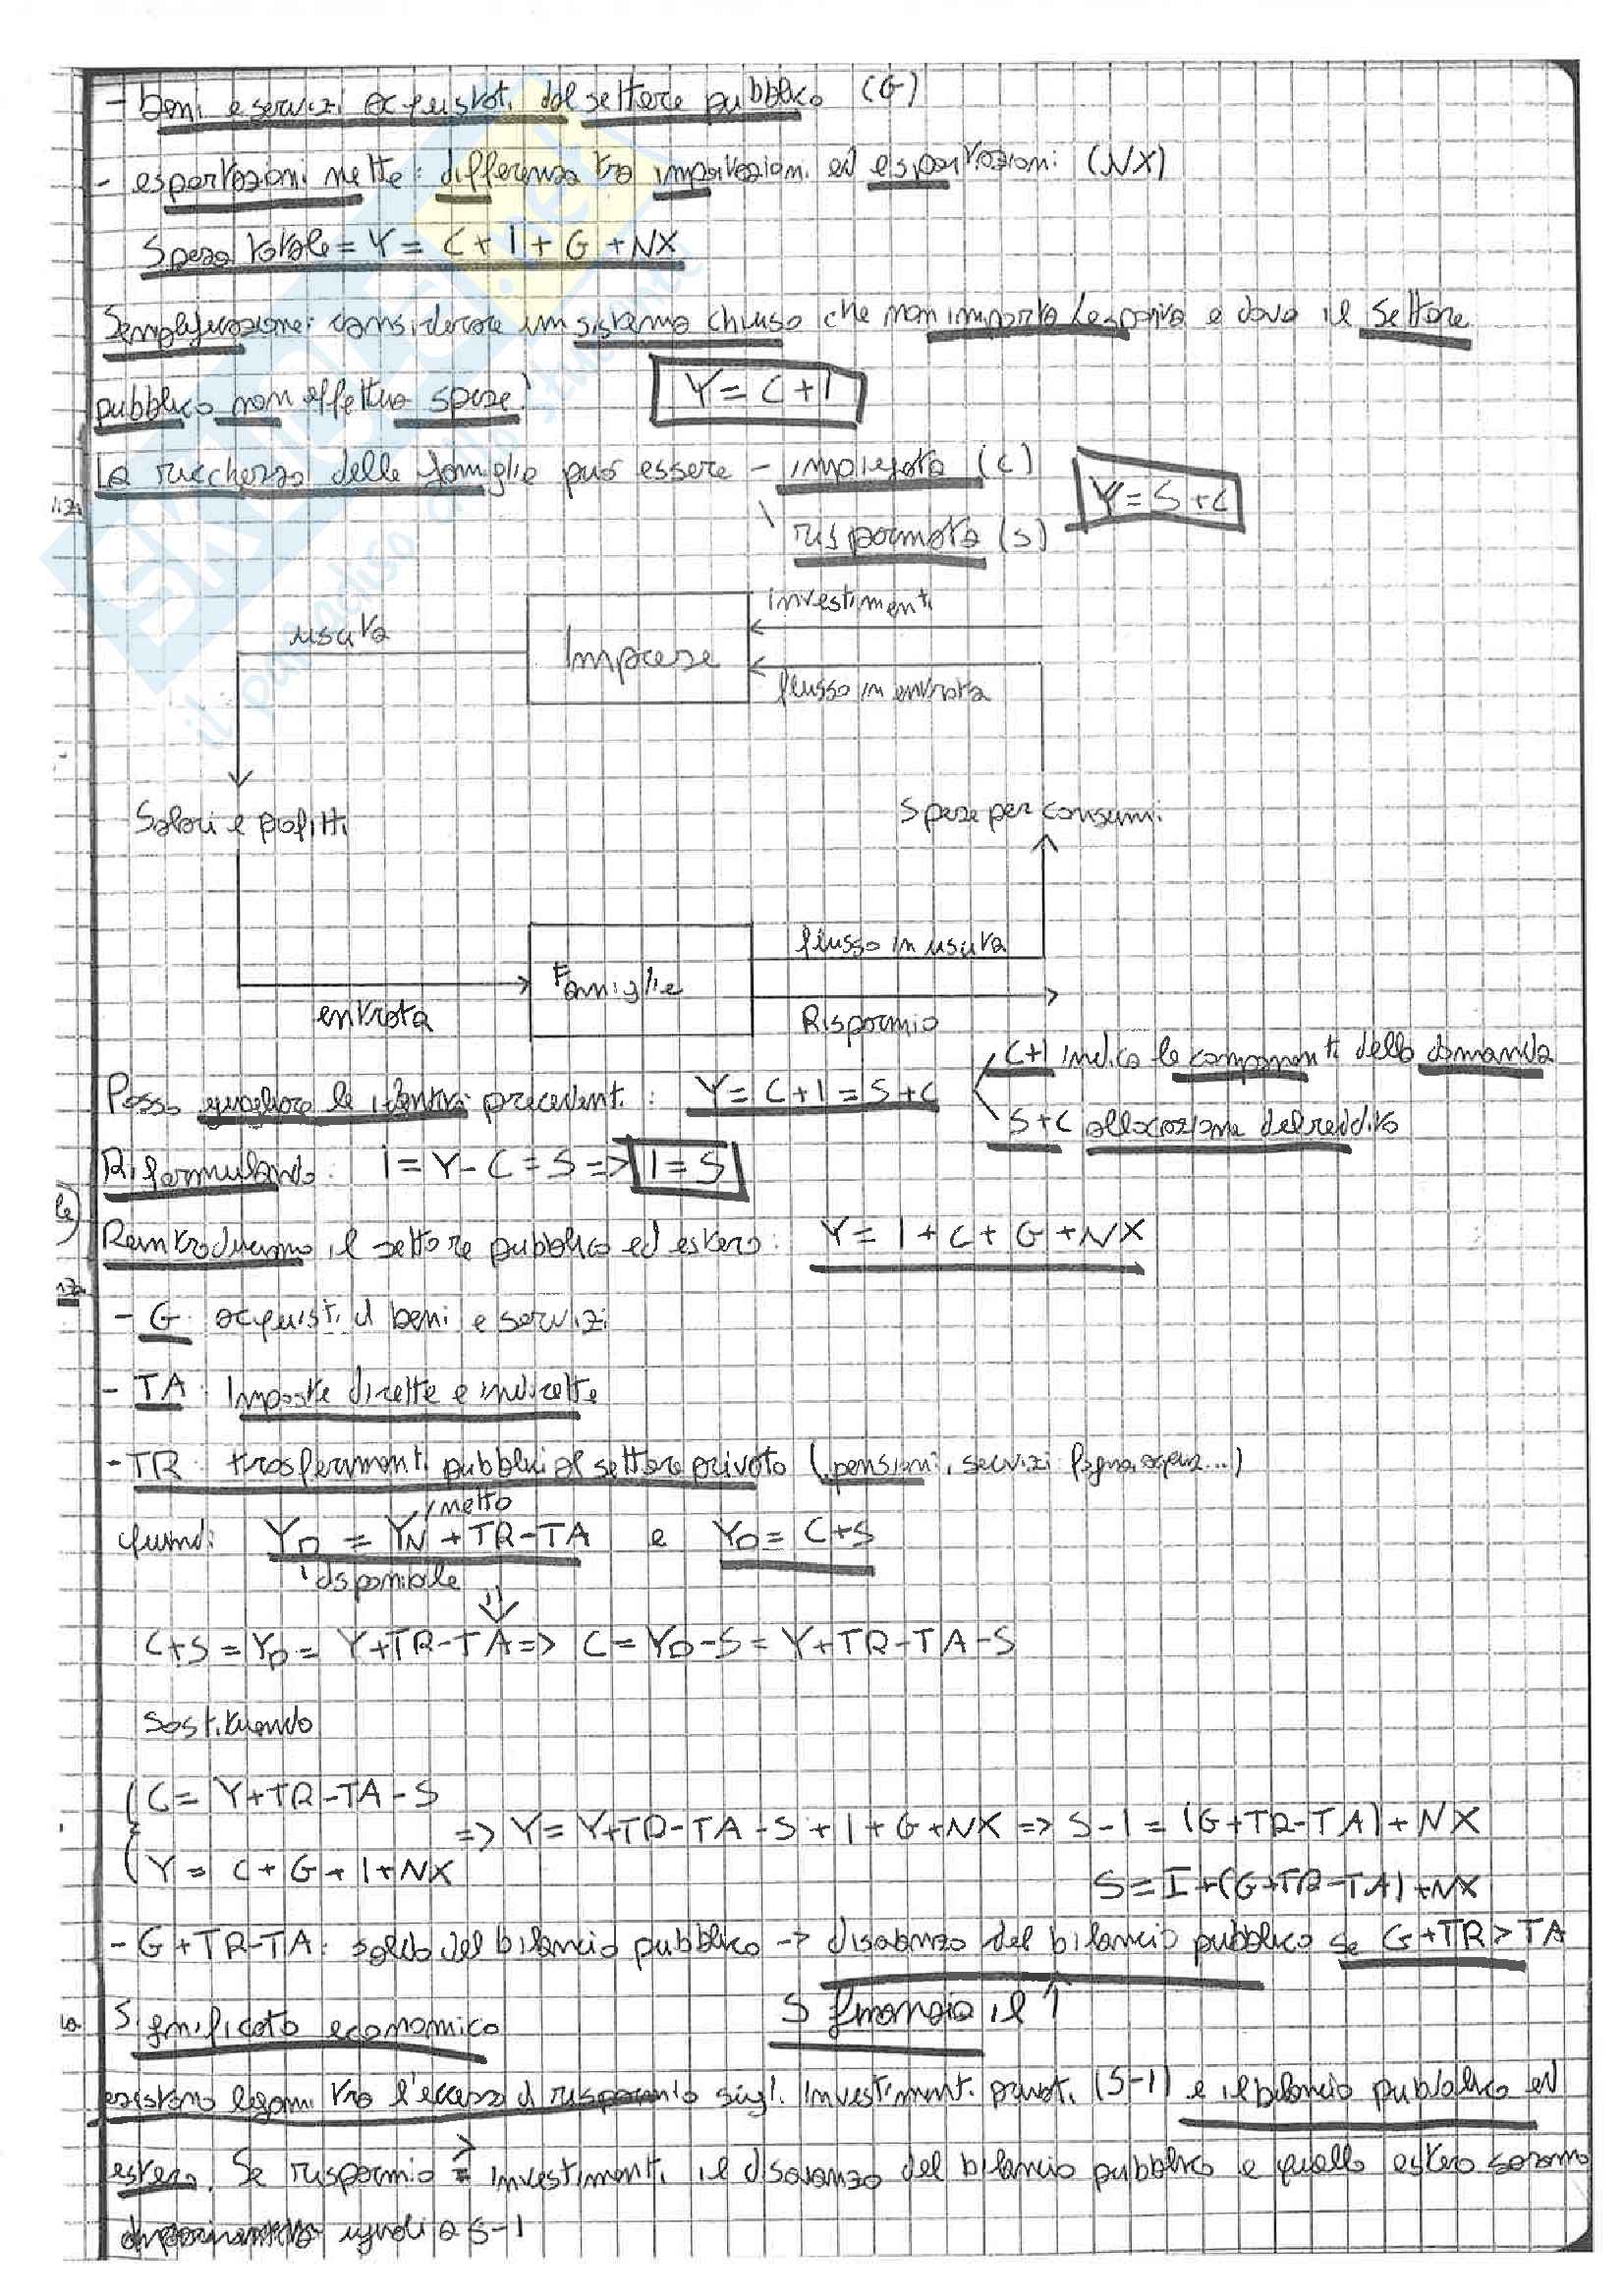 - beni e servizi acquistati dal settore pubblico (G)
- esportazioni nette: differenza tra importazioni ed esportazioni (NX)
Spesa totale = Y = C + I + G + NX
Semplificazione: considerare un sistema chiuso che non importa / esporta e dove il settore
pubblico non effettua spese:
Y = C + I
La ricchezza delle famiglie può essere - impiegata (C)
\ risparmiata (S)
Y = S + C
investimenti
uscita
Imprese
flusso in entrata
Salari e profitti
Spese per consumi
flusso in uscita
Famiglie
entrata
Risparmio
C+I indica le componenti della domanda
Posso eguagliare le identità precedenti: Y = C + I = S + C
S+C allocazione del reddito
Riformulando: I = Y - C = S => I = S
Reintroduciamo il settore pubblico ed estero: Y = I + C + G + NX
- G: acquisti di beni e servizi
- TA: Imposte dirette e indirette
- TR: trasferimenti pubblici al settore privato (pensioni, servizi fogna, acqua...)
netto
quindi: YD = YN + TR - TA e YD = C + S
disponibile
C + S = YD = Y + TR - TA => C = YD - S = Y + TR - TA - S
Sostituendo
C = Y + TR - TA - S
=> Y = Y + TR - TA - S + I + G + NX => S - I = (G + TR - TA) + NX
Y = C + G + I + NX
S = I + (G + TR - TA) + NX
- G + TR - TA: saldo del bilancio pubblico -> disavanzo del bilancio pubblico se G + TR > TA
Significato economico
S finanzia il ↑
esistono legami tra l'eccesso di risparmio sugl. investimenti privati (S-I) e il bilancio pubblico ed
estero. Se risparmio > = investimenti il disavanzo del bilancio pubblico e quello estero saranno
uguali a S-I
SKUOLA.net
il paradiso dello studente